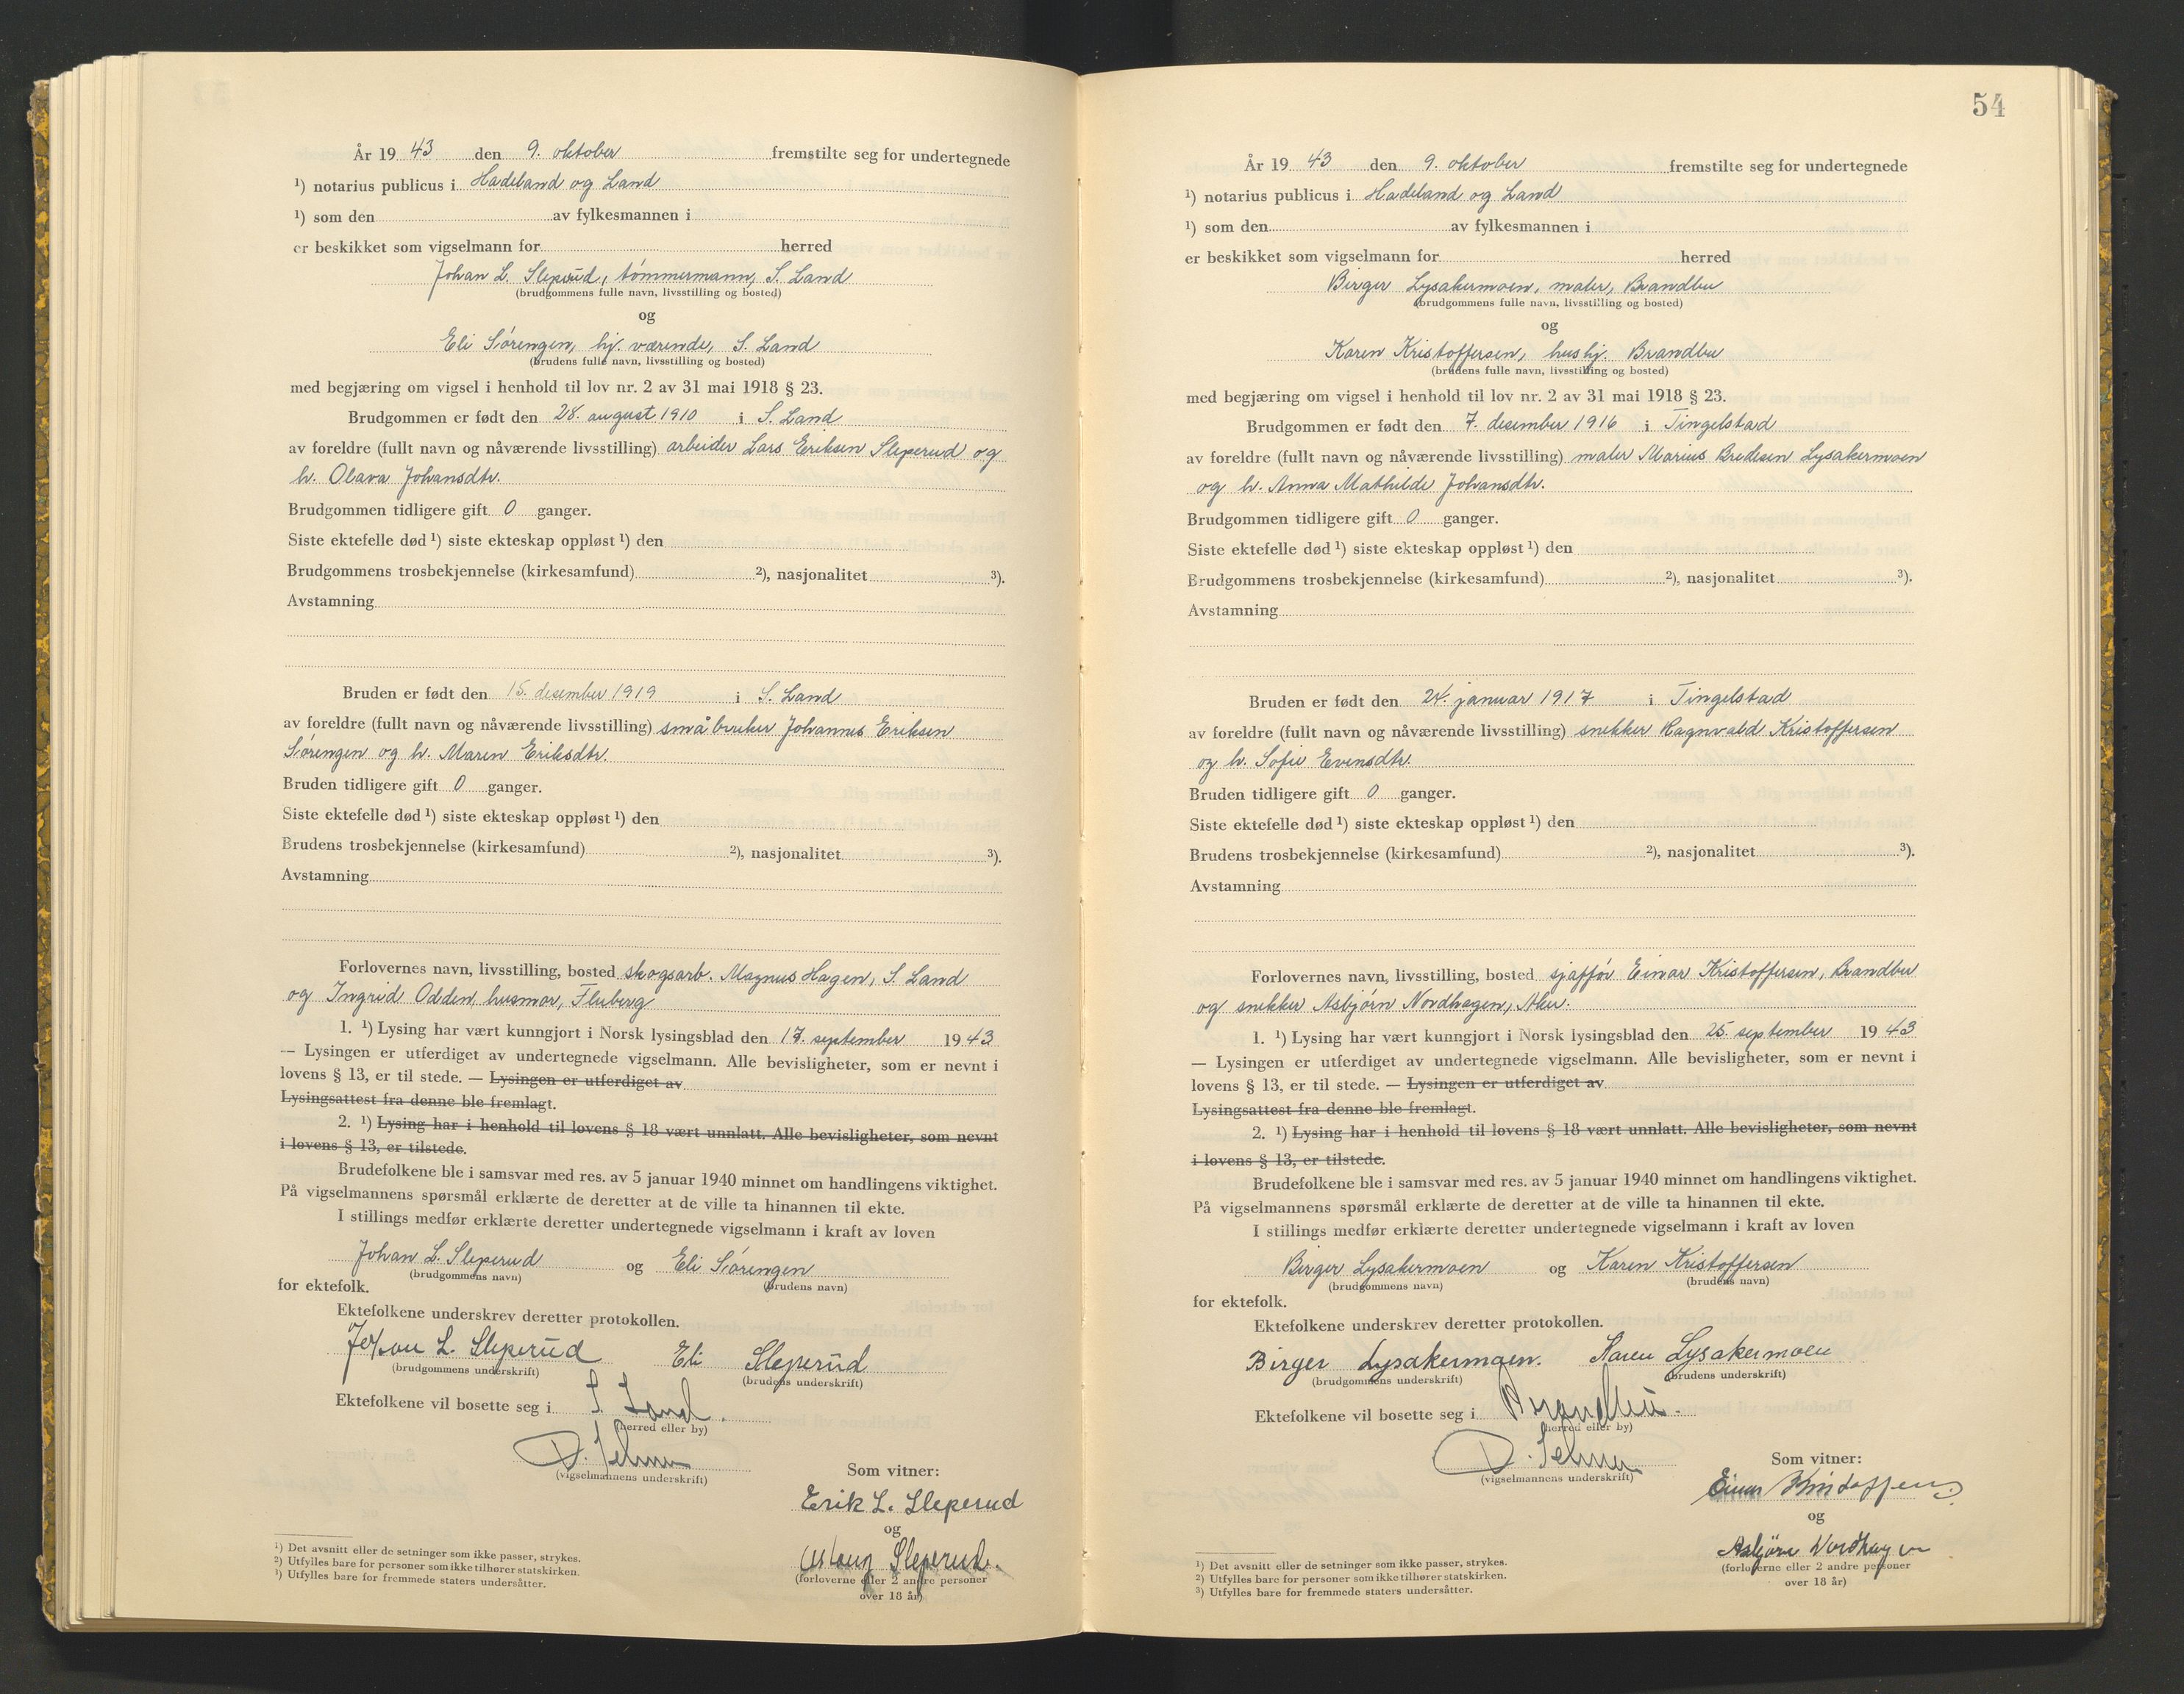 År 19 43 den 9. oktober fremstilte seg for undertegnede
¹) notarius publicus i Hadeland og Land
¹) som den av fylkesmannen i
er beskikket som vigselmann for herred
Johan L. Sleperud, tømmermann, S. Land
(brudgommens fulle navn, livsstilling og bosted)
og
Eli Sørengen, hj. værende, S. Land
(brudens fulle navn, livsstilling og bosted)
med begjæring om vigsel i henhold til lov nr. 2 av 31 mai 1918 § 23.
Brudgommen er født den 28. august 1910 i S. Land
av foreldre (fullt navn og nåværende livsstilling) arbeider Lars Eriksen Sleperud og
h. Olava Johansdtr.
Brudgommen tidligere gift 0 ganger.
Siste ektefelle død ¹) siste ekteskap oppløst ¹) den
Brudgommens trosbekjennelse (kirkesamfund) ²), nasjonalitet ³).
Avstamning
Bruden er født den 15. desember 1919 i S. Land
av foreldre (fullt navn og nåværende livsstilling) småbruker Johannes Eriksen
Sørengen og h. Maren Eriksdtr.
Bruden tidligere gift 0 ganger.
Siste ektefelle død ¹) siste ekteskap oppløst ¹) den
Brudens trosbekjennelse (kirkesamfund) ²), nasjonalitet ³).
Avstamning
Forlovernes navn, livsstilling, bosted skogsarb. Magnus Hagen, S. Land
og Ingrid Odden, husmor, Fluberg
1. ¹) Lysing har vært kunngjort i Norsk lysingsblad den 17. september 19 43
— Lysingen er utferdiget av undertegnede vigselmann. Alle bevisligheter, som er nevnt i
lovens § 13, er til stede. — Lysingen er utferdiget av
Lysingsattest fra denne ble fremlagt.
2. ¹) Lysing har i henhold til lovens § 18 vært unnlatt. Alle bevisligheter, som nevnt
i lovens § 13, er tilstede.
Brudefolkene ble i samsvar med res. av 5 januar 1940 minnet om handlingens viktighet.
På vigselmannens spørsmål erklærte de deretter at de ville ta hinannen til ekte.
I stillings medfør erklærte deretter undertegnede vigselmann i kraft av loven
Johan L. Sleperud og Eli Sørengen
(brudgommens navn) (brudens navn)
for ektefolk.
Ektefolkene underskrev deretter protokollen.
Johan L. Sleperud Eli Sleperud
(brudgommens underskrift) (brudens underskrift)
Ektefolkene vil bosette seg i S. Land.
(herred eller by)
D. Selmer
(vigselmannens underskrift)
Som vitner:
Erik L. Sleperud
og
Sleperud.
(forloverne eller 2 andre personer
over 18 år)
¹) Det avsnitt eller de setninger som ikke passer, strykes.
²) Utfylles bare for personer som ikke tilhører statskirken.
³) Utfylles bare for fremmede staters undersåtter.
54
År 19 43 den 9. oktober fremstilte seg for undertegnede
¹) notarius publicus i Hadeland og Land
¹) som den av fylkesmannen i
er beskikket som vigselmann for herred
Birger Lysakermoen, maler, Brandbu
(brudgommens fulle navn, livsstilling og bosted)
og
Karen Kristoffersen, hushj. Brandbu
(brudens fulle navn, livsstilling og bosted)
med begjæring om vigsel i henhold til lov nr. 2 av 31 mai 1918 § 23.
Brudgommen er født den 7. desember 1916 i Tingelstad
av foreldre (fullt navn og nåværende livsstilling) maler Marius Bredesen Lysakermoen
og h. Anna Mathilde Johansdtr.
Brudgommen tidligere gift 0 ganger.
Siste ektefelle død ¹) siste ekteskap oppløst ¹) den
Brudgommens trosbekjennelse (kirkesamfund) ²), nasjonalitet ³).
Avstamning
Bruden er født den 24. januar 1917 i Tingelstad
av foreldre (fullt navn og nåværende livsstilling) snekker Ragnvald Kristoffersen
og h. Sofie Evensdtr.
Bruden tidligere gift 0 ganger.
Siste ektefelle død ¹) siste ekteskap oppløst ¹) den
Brudens trosbekjennelse (kirkesamfund) ²), nasjonalitet ³).
Avstamning
Forlovernes navn, livsstilling, bosted sjaffør Einar Kristoffersen, Brandbu
og snekker Asbjørn Nordhagen, Aker.
1. ¹) Lysing har vært kunngjort i Norsk lysingsblad den 25. september 19 43
— Lysingen er utferdiget av undertegnede vigselmann. Alle bevisligheter, som er nevnt i
lovens § 13, er til stede. — Lysingen er utferdiget av
Lysingsattest fra denne ble fremlagt.
2. ¹) Lysing har i henhold til lovens § 18 vært unnlatt. Alle bevisligheter, som nevnt
i lovens § 13, er tilstede.
Brudefolkene ble i samsvar med res. av 5 januar 1940 minnet om handlingens viktighet.
På vigselmannens spørsmål erklærte de deretter at de ville ta hinannen til ekte.
I stillings medfør erklærte deretter undertegnede vigselmann i kraft av loven
Birger Lysakermoen og Karen Kristoffersen
(brudgommens navn) (brudens navn)
for ektefolk.
Ektefolkene underskrev deretter protokollen.
Birger Lysakermoen. Karen Lysakermoen
(brudgommens underskrift) (brudens underskrift)
Ektefolkene vil bosette seg i Brandbu.
(herred eller by)
D. Selmer
(vigselmannens underskrift)
Som vitner:
Einar Kristoffersen
og
Asbjørn Nordhagen
(forloverne eller 2 andre personer
over 18 år)
¹) Det avsnitt eller de setninger som ikke passer, strykes.
²) Utfylles bare for personer som ikke tilhører statskirken.
³) Utfylles bare for fremmede staters undersåtter.